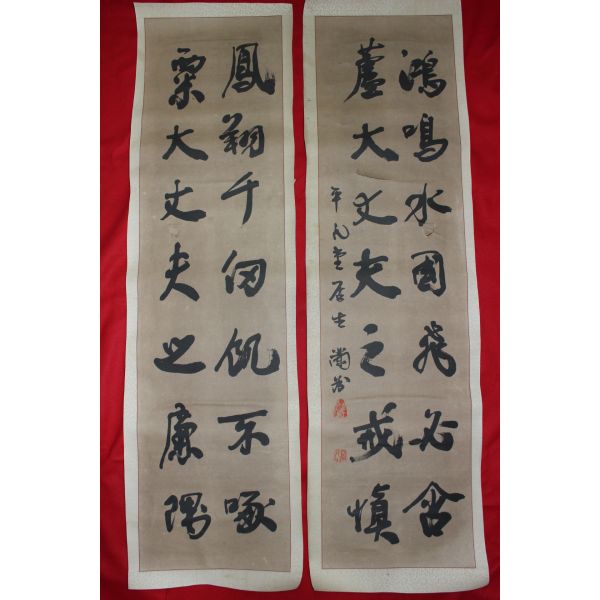 鳳翔千仞飢不啄
粟大丈夫之廉隅
鴻鳴水國飛必含
蘆大丈夫之戒愼
平凡堂居士